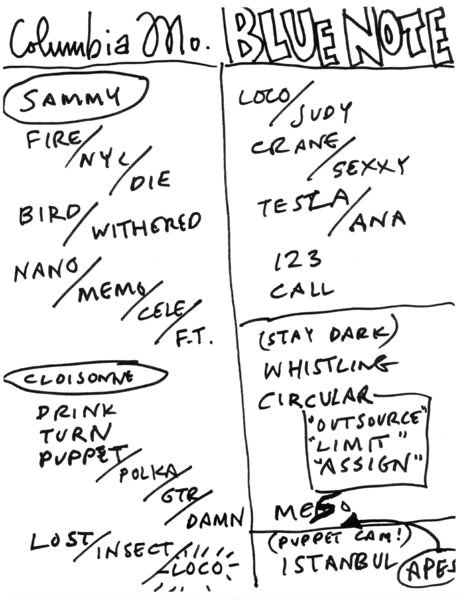 Columbia Mo.
SAMMY
FIRE/
NYC/
DIE
BIRD/
WITHERED
NANO/
MEMO/
CELE/
F.T.
CLOISONNE
DRINK
TURN
PUPPET/
POLKA/
GTR/
DAMN
LOST/
INSECT/
LOCO
BLUE NOTE
LOCO/
JUDY
CRANE/
SEXXY
TESLA/
ANA
123
CALL
(STAY DARK)
WHISTLING
CIRCULAR
"OUTSOURCE"
"LIMIT"
"ASSIGN"
(PUPPET CAM!)
ISTANBUL
APES